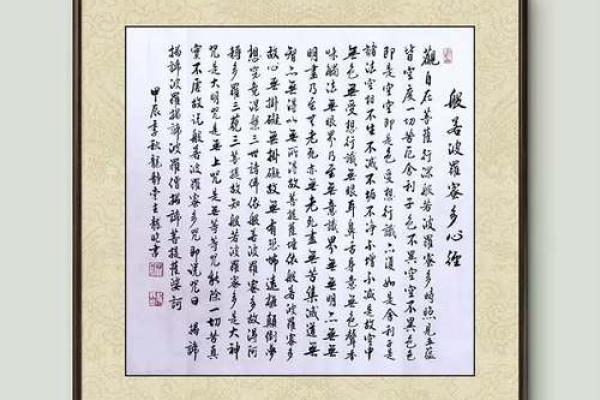 般若波羅密多心經
觀自在菩薩行深般若波羅密多時照見五蘊
皆空度一切苦厄舍利子色不異空空不異色色
即是空空即是色受想行識亦復如是舍利子是
諸法空相不生不滅不垢不淨不增不減是故空中
無色無受想行識無眼耳鼻舌身意無色聲香
味觸法無眼界乃至無意識界無無明亦無無
明盡乃至無老死亦無老死盡無苦集滅道無
智亦無得以無所得故菩提薩埵依般若波羅密多
故心無掛礙無掛礙故無有恐怖遠離顛倒夢
想究竟涅槃三世諸佛依般若波羅密多故得阿
耨多羅三藐三菩提故知般若波羅密多是大神
咒是大明咒是無上咒是無等等咒能除一切苦真
實不虛故說般若波羅密多咒即說咒曰 揭諦
揭諦波羅揭諦波羅僧揭諦菩提薩婆訶
甲辰季秋龍靜堂主龍書